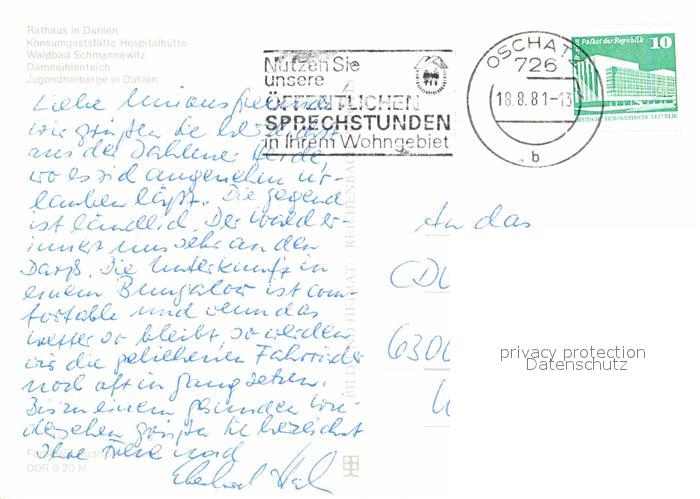 Rathaus in Dahlen
Konsumgaststätte Hospitalhütte
Waldbad Schmannewitz
Dammühlenteich
Jugendherberge in Dahlen
Nutzen Sie
unsere
ÖFFENTLICHEN
SPRECHSTUNDEN
in Ihrem Wohngebiet
OSCHATZ
726
18.8.81-13
b
Palast der Republik 10
DEUTSCHE DEMOKRATISCHE REPUBLIK
Liebe Unionsfreunde!
wir grüßen Sie herzlichst
aus der Dahlener Heide,
wo es sich angenehm ur-
lauben läßt. Die Gegend
ist ländlich. Der Wald er-
innert uns sehr an den
Darß. Die Unterkunft in
einem Bungalow ist com-
fortable und wenn das
Wetter so bleibt, so werden
wir die geliehenen Fahrräder
noch oft in gang setzen.
Bis zu einem gesunden Wie-
dersehen grüßen Sie herzlichst
Ihre und
Eberhard
An das
CDU
630
BILD UND HEIMAT REICHENBACH
DDR 0,20 M
privacy protection
Datenschutz